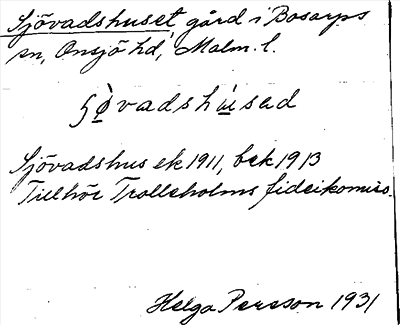 Sjövadshuset gård i Bosarps
sn, Onsjö hd, Malm. l.
Sjövadshus ek 1911, bek 1913
Tillhör Trolleholms fideikomiss.
Helga Persson 1931